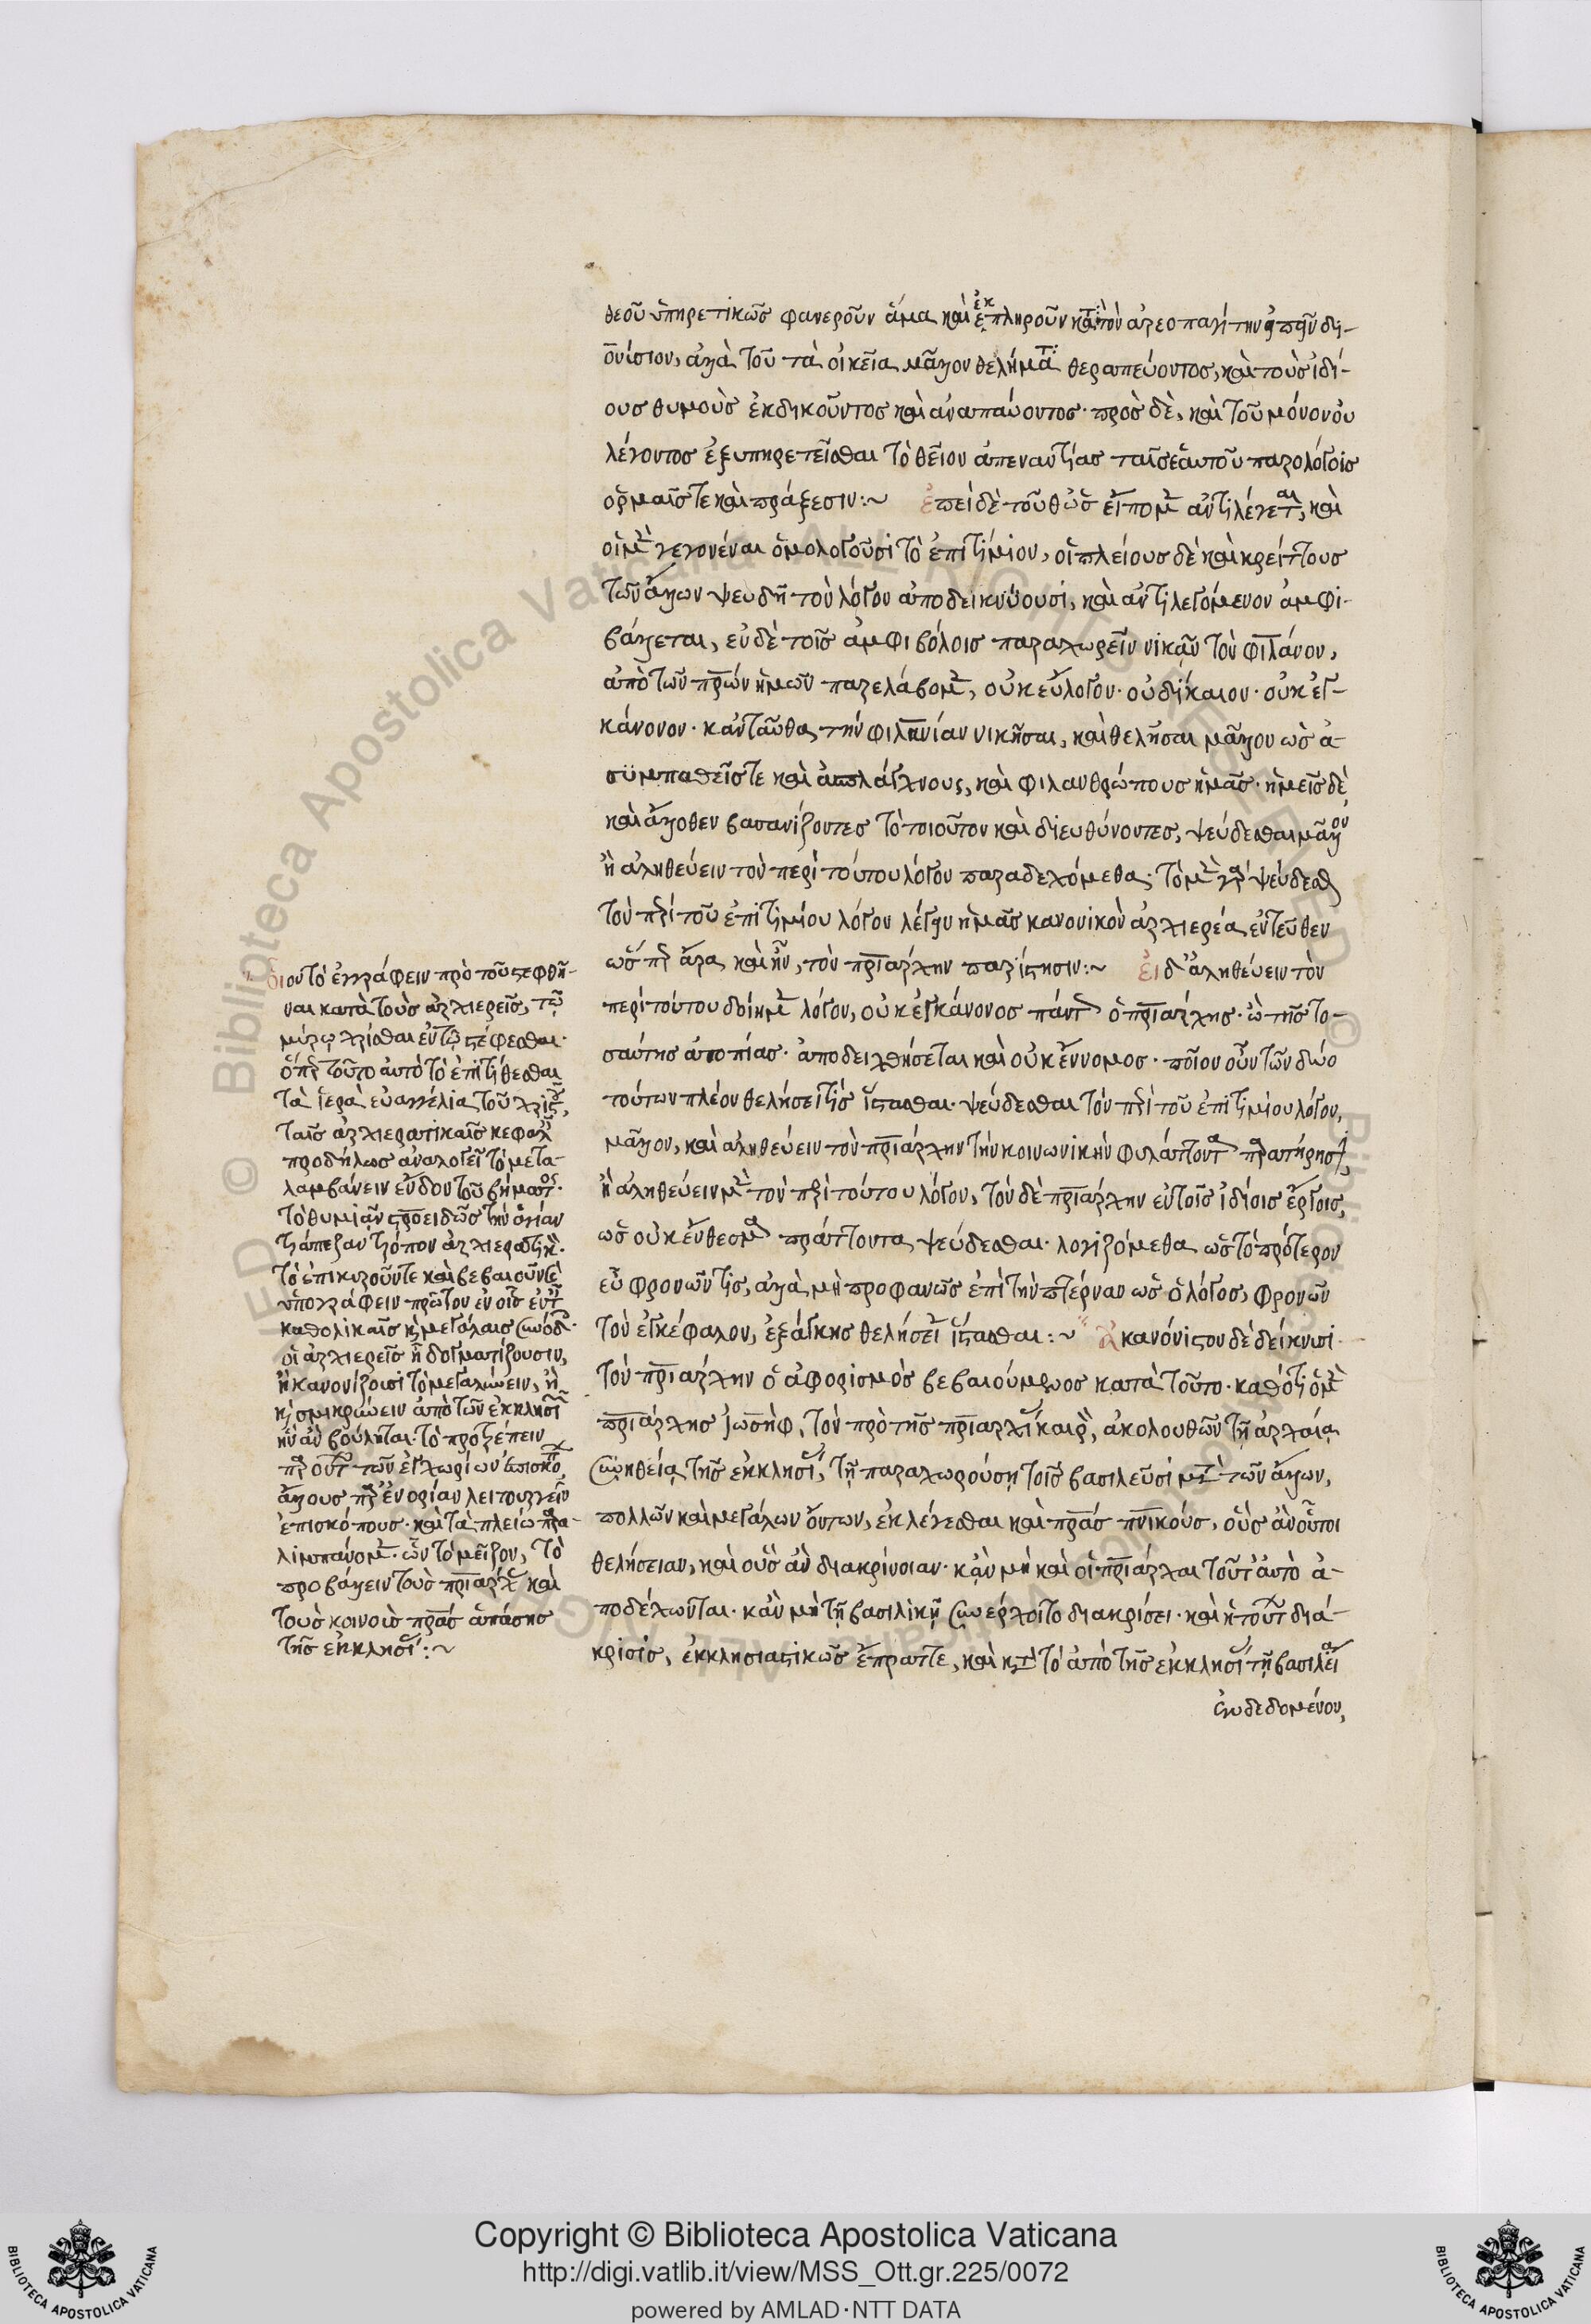 θεοῦ ὑπηρετικῶς φανεροῦν ἅμα καὶ ἐκπληροῦν κατὰ τὸν ἀρεοπαγίτην δι-
ονύσιον, ἀλλὰ τοῦ τὰ οἰκεῖα μᾶλλον θελήματα θεραπεύοντος, καὶ τοὺς ἰδί-
ους θυμοὺς ἐκδικοῦντος καὶ ἀναπαύοντος· πρὸς δὲ, καὶ τοῦ μόνον οὐ
λέγοντος ἐξυπηρετεῖσθαι τὸ θεῖον ἀπεναντίας ταῖς ἑαυτοῦ παραλόγοις
ὁρμαῖς τε καὶ πράξεσιν:~ ἐπεὶ δὲ τοῦθ' ὡς εἴπομεν ἀντιλέγεται, καὶ
οἱ μὲν γεγονέναι ὁμολογοῦσι τὸ ἐπιτίμιον, οἱ πλείους δὲ καὶ κρείττους
τῶν ἄλλων ψευδῆ τὸν λόγον ἀποδεικνύουσι, καὶ ἀντιλεγόμενον ἀμφι-
βάλλεται, ἐν δὲ τοῖς ἀμφιβόλοις παραχωρεῖν νικᾶν τὸ φιλάνον,
ἀπὸ τῶν πρων ἡμῶν παρελάβομεν, οὐκ εὔλογον· οὐ δίκαιον· οὐκ ἐγ-
κάνονον· κἀνταῦθα τὴν φιλανίαν νικῆσαι, καὶ θελῆσαι μᾶλλον ὡς ἀ-
συμπαθεῖς τε καὶ ἀσπλάγχνους, καὶ φιλανθρώπους ἡμᾶς· ἡμεῖς δὲ
καὶ ἄλλοθεν βασανίζοντες τὸ τοιοῦτον καὶ διευθύνοντες, ψεύδεσθαι μᾶλλον
ἢ ἀληθεύειν τὸν περὶ τούτου λόγον παραδεχόμεθα· τὸ μὲν γὰρ ψεύδεσθαι
τὸν περὶ τοῦ ἐπιτιμίου λόγον λέγειν ἡμᾶς κανονικὸν ἀρχιερέα ἐντεῦθεν
ὥσπερ ἄρα καὶ ἦν, τὸν πριάρχην παρίστησιν:~ εἰ δ' ἀληθεύειν τὸν
περὶ τούτου δοίημεν λόγον, οὐκ ἐγκάνονος πάντως ὁ πριάρχης· ὢ τῆς το-
σαύτης ἀτοπίας· ἀποδειχθήσεται καὶ οὐκ ἔννομος· ποῖον οὖν τῶν δύο
τούτων πλέον θελήσει τίς ἵστασθαι· ψεύδεσθαι τὸν περὶ τοῦ ἐπιτιμίου λόγον,
μᾶλλον, καὶ ἀληθεύειν τὸν πριάρχην τὴν κοινωνικὴν φυλάττοντα παρατήρησιν,
ἢ ἀληθεύειν μὲν τὸν περὶ τούτου λόγον, τὸν δὲ πριάρχην ἐν τοῖς ἰδίοις ἔργοις,
ὡς οὐκ ἔνθεσμα πράττοντα ψεύδεσθαι· λογιζόμεθα ὡς τὸ πρότερον
εὖ φρονῶν τίς, ἀλλὰ μὴ προφανῶς ἐπὶ τὴν πτέρναν ὡς ὁ λόγος, φρονῶν
τὸν ἐγκέφαλον, ἐξάγκης θελήσει ἵστασθαι:~ ἀκανόνιστον δὲ δείκνυσι
τὸν πριάρχην ὁ ἀφορισμὸς βεβαιούμενος κατὰ τοῦτο· καθότι ὁ μὲν
πριάρχης ἰωσὴφ, τὸν πρὸ τῆς πριαρχίας καιρὸν, ἀκολουθῶν τῇ ἀρχαίᾳ
συνηθείᾳ τῆς ἐκκλησίας, τῇ παραχωρούσῃ τοῖς βασιλεῦσι μετὰ τῶν ἄλλων,
πολλῶν καὶ μεγάλων ὄντων, ἐκλέγεσθαι καὶ πρας πνικούς, οὓς ἂν οὗτοι
θελήσειαν, καὶ οὓς ἂν διακρίνοιαν· κἂν μὴ καὶ οἱ πριάρχαι τοῦτ' αὐτὸ ἀ-
ποδέχωνται· κἂν μὴ τῇ βασιλικῇ συνέρχοιτο διακρίσει· καὶ ἡ τούτων διά-
κρισις, ἐκκλησιαστικῶς ἔπραττε, καὶ κατὰ τὸ ἀπὸ τῆς ἐκκλησίας τῇ βασιλείᾳ
ἐνδεδομένον,
οἷον τὸ ἐγγράφειν πρὸ τοῦ στεφθῆ-
ναι κατὰ τοὺς ἀρχιερεῖς, τῷ
μύρῳ χρίεσθαι ἐν τῷ στέφεσθαι·
ὅπερ τοῦτο αὐτὸ τὸ ἐπιτίθεσθαι
τὰ ἱερὰ εὐαγγέλια τοῦ χριστοῦ,
ταῖς ἀρχιερατικαῖς κεφαλαῖς
προδήλως ἀναλογεῖ τὸ μετα-
λαμβάνειν ἔνδον τοῦ βήματος·
τὸ θυμιᾶν στροειδῶς τὴν ἁγίαν
τράπεζαν τρόπον ἀρχιερατικὸν·
τὸ ἐπικυροῦν τε καὶ βεβαιοῦν τὲ
ὑπογράφειν πρῶτον ἐν οἷς ἐν ταῖς
καθολικαῖς καὶ μεγάλαις συνόδοις
οἱ ἀρχιερεῖς ἢ δογματίζουσιν,
ἢ κανονίζουσι τὸ μεγαλύνειν, ἢ
καὶ σμικρύνειν ἀπὸ τῶν ἐκκλησιῶν
ἣν ἂν βούληται· τὸ προτρέπειν
παρόντων τῶν ἐγχωρίων ἐπισκόπων,
ἄλλους παρ' ἐνορίαν λειτουργεῖν
ἐπισκόπους· καὶ τὰ πλείω παρα-
λιμπάνομεν· ὧν τὸ μεῖζον, τὸ
προβάλλειν τοὺς πριάρχας καὶ
τοὺς κοινοὺς πρας ἁπάσης
τῆς ἐκκλησίας:~
Copyright © Biblioteca Apostolica Vaticana
http://digi.vatlib.it/view/MSS_Ott.gr.225/0072
powered by AMLAD·NTT DATA
BIBLIOTECA APOSTOLICA VATICANA
BIBLIOTECA APOSTOLICA VATICANA